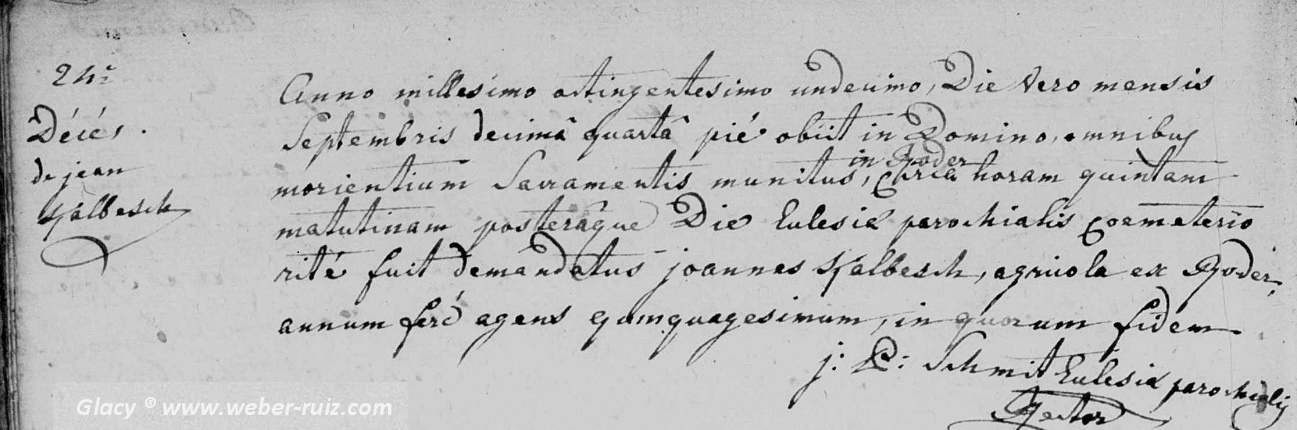 24.
Décés.
de jean
Kalbesch
Anno millesimo octingentesimo undecimo, Die vero mensis
Septembris decimâ quartâ piè obiit in Domino, omnibus
morientium Sacramentis munitus, circa horam quintam
in Roder
matutinam posterâque Die Eclesiæ parochialis coemeterio
rité fuit demandatus joannes Kalbesch, agricola ex Roder,
annum feré agens quinquagesimum, in quorum fidem
j: P: Schmit Eclesiæ parochialis
Rector
Glacy © www.weber-ruiz.com